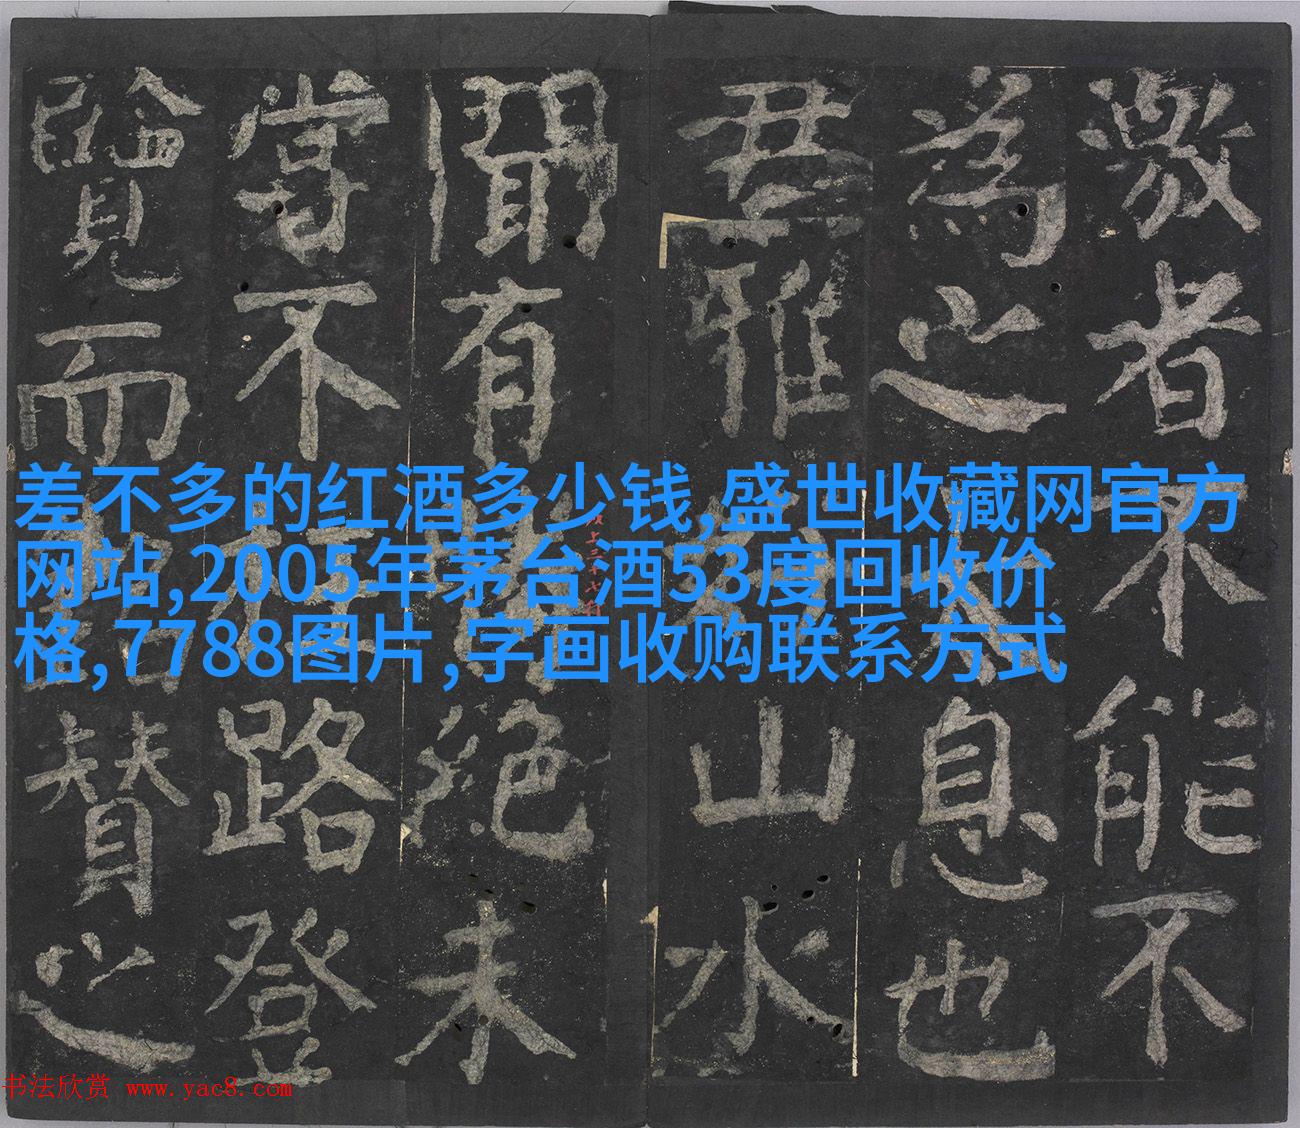 差不多的红酒多少钱,盛世收藏网官方
网站,2005年茅台酒53度回收价
格,7788图片,字画收购联系方式
激者不能不
為之息也
君雅山水
聞有絕未
嘗不枉路登
覽而贊之
书法欣赏 www.yac8.com